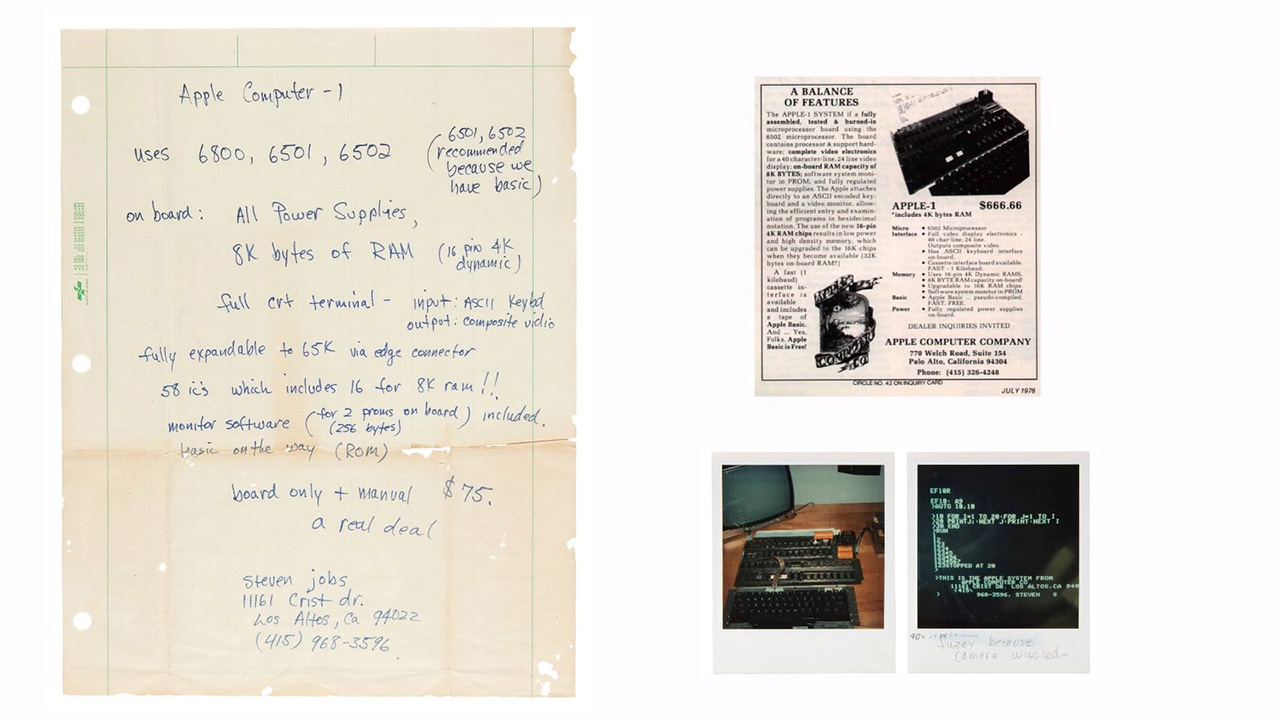 Apple Computer - 1
uses 6800, 6501, 6502
(6501, 6502
recommended
because we
have basic)
on board: All Power Supplies,
8K bytes of RAM (16 pin 4K
dynamic)
full crt terminal - input: ASCII Keybd
output: composite vidio
fully expandable to 65K via edge connector
58 ic's which includes 16 for 8K ram!!
monitor software (for 2 proms on board) included.
(256 bytes)
basic on the way (ROM)
board only + manual $75.
a real deal
steven jobs
11161 Crist dr.
Los Altos, Ca 94022
(415) 968-3596
A BALANCE
OF FEATURES
The APPLE-1 SYSTEM if a fully
assembled, tested & burned-in
microprocessor board using the
6502 microprocessor. The board
contains processor & support hard-
ware; complete video electronics
for a 40 character/line, 24 line video
display; on-board RAM capacity of
8K BYTES; software system moni-
tor in PROM; and fully regulated
power supplies. The Apple attaches
directly to an ASCII encoded key-
board and a video monitor, allow-
ing the efficient entry and examin-
ation of programs in hexidecimal
notation. The use of the new 16-pin
4K RAM chips results in low power
and high density memory, which
can be upgraded to the 16K chips
when they become available [32K
bytes on-board RAM!!]
A fast [1
kilobaud]
cassette in-
terface is
available
and includes
a tape of
Apple Basic.
And ... Yes,
Folks, Apple
Basic is Free!
APPLE COMPUTER CO
APPLE-1 $666.66
*includes 4K bytes RAM
Micro • 6502 Microprocessor
Interface • Full video display electronics -
40 char/line, 24 line.
Outputs composite video.
• Has ASCII keyboard interface
on-board.
• Cassette interface board available.
FAST - 1 Kilobaud.
Memory • Uses 16-pin 4K Dynamic RAMS.
• 8K BYTE RAM capacity on-board!
• Upgradable to 16K RAM chips.
• Software system monitor in PROM
Basic • Apple Basic ... pseudo-compiled,
FAST, FREE.
Power • Fully regulated power supplies
on-board.
DEALER INQUIRIES INVITED
APPLE COMPUTER COMPANY
770 Welch Road, Suite 154
Palo Alto, California 94304
Phone: (415) 326-4248
CIRCLE NO. 42 ON INQUIRY CARD
JULY 1976
EF10R
EF10: A9
>AUTO 10,10
>10 FOR I=1 TO 20:FOR J=1 TO I
>20 PRINTJ;:NEXT J:PRINT:NEXT I
>30 END
>RUN
1
12
123
1234
12345
123456
1234567
123STOPPED AT 20
>THIS IS THE APPLE SYSTEM FROM
APPLE COMPUTER CO.
11161 CRIST DR. LOS ALTOS,CA 940
(415)
> 968-3596, STEVEN
fuzzy because
camera wiggled-